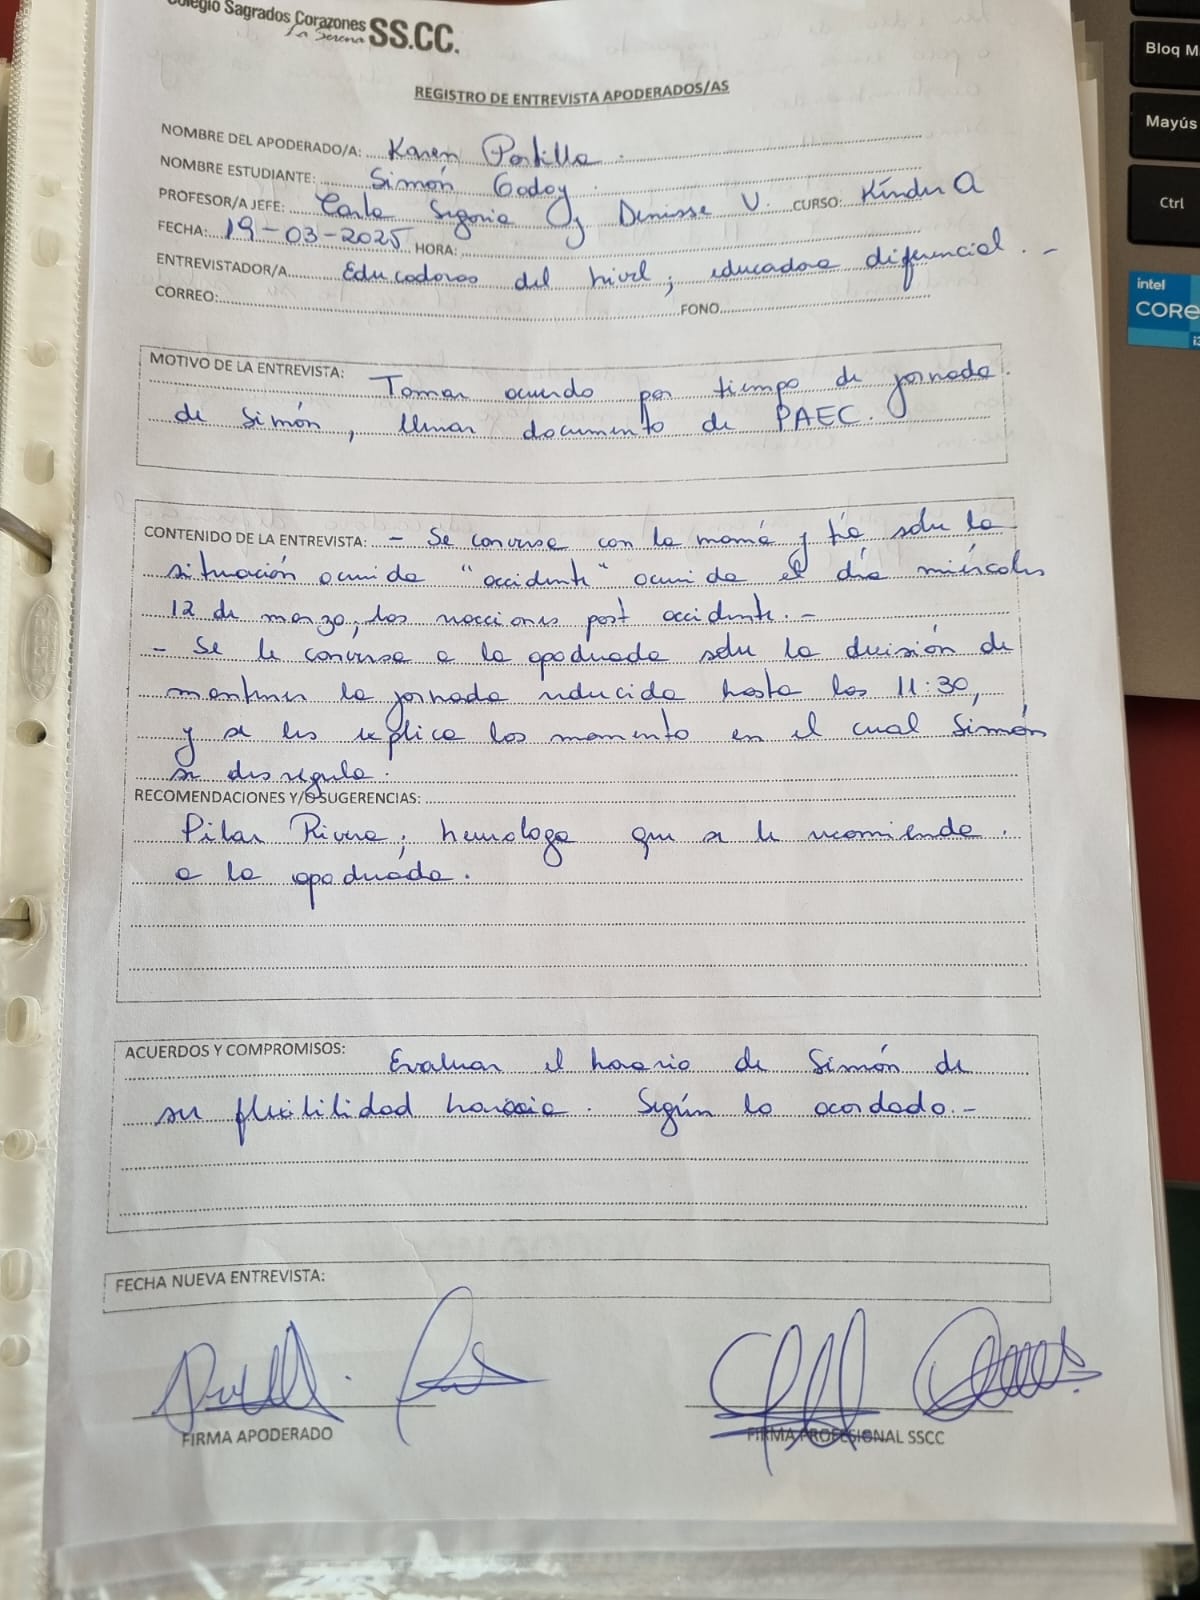 Colegio Sagrados Corazones SS.CC.
La Serena
REGISTRO DE ENTREVISTA APODERADOS/AS
NOMBRE DEL APODERADO/A: Karen Portilla.
NOMBRE ESTUDIANTE: Simón Godoy.
PROFESOR/A JEFE: Carla Segovia y Denisse V. CURSO: Kínder A
FECHA: 19-03-2025 HORA:
ENTREVISTADOR/A Educadoras del nivel; educadora diferencial.-
CORREO: FONO
MOTIVO DE LA ENTREVISTA: Tomar acuerdo por tiempo de jornada
de Simón, llenar documento de PAEC.
CONTENIDO DE LA ENTREVISTA: - Se conversa con la mamá y tía sobre la
situación ocurrida "accidente" ocurrida el día miércoles
12 de marzo, las reacciones post accidente.-
- Se le conversa a la apoderada sobre la decisión de
mantener la jornada reducida hasta las 11:30,
y se les explica los momento en el cual Simón
se desregula.
RECOMENDACIONES Y/O SUGERENCIAS:
Pilar Rivera; que se le recomienda
a la apoderada.
ACUERDOS Y COMPROMISOS: Evaluar el horario de Simón de
su flexibilidad horaria. Según lo acordado.-
FECHA NUEVA ENTREVISTA:
FIRMA APODERADO FIRMA PROFESIONAL SSCC
Bloq M
Mayús
Ctrl
intel
CORE
i3